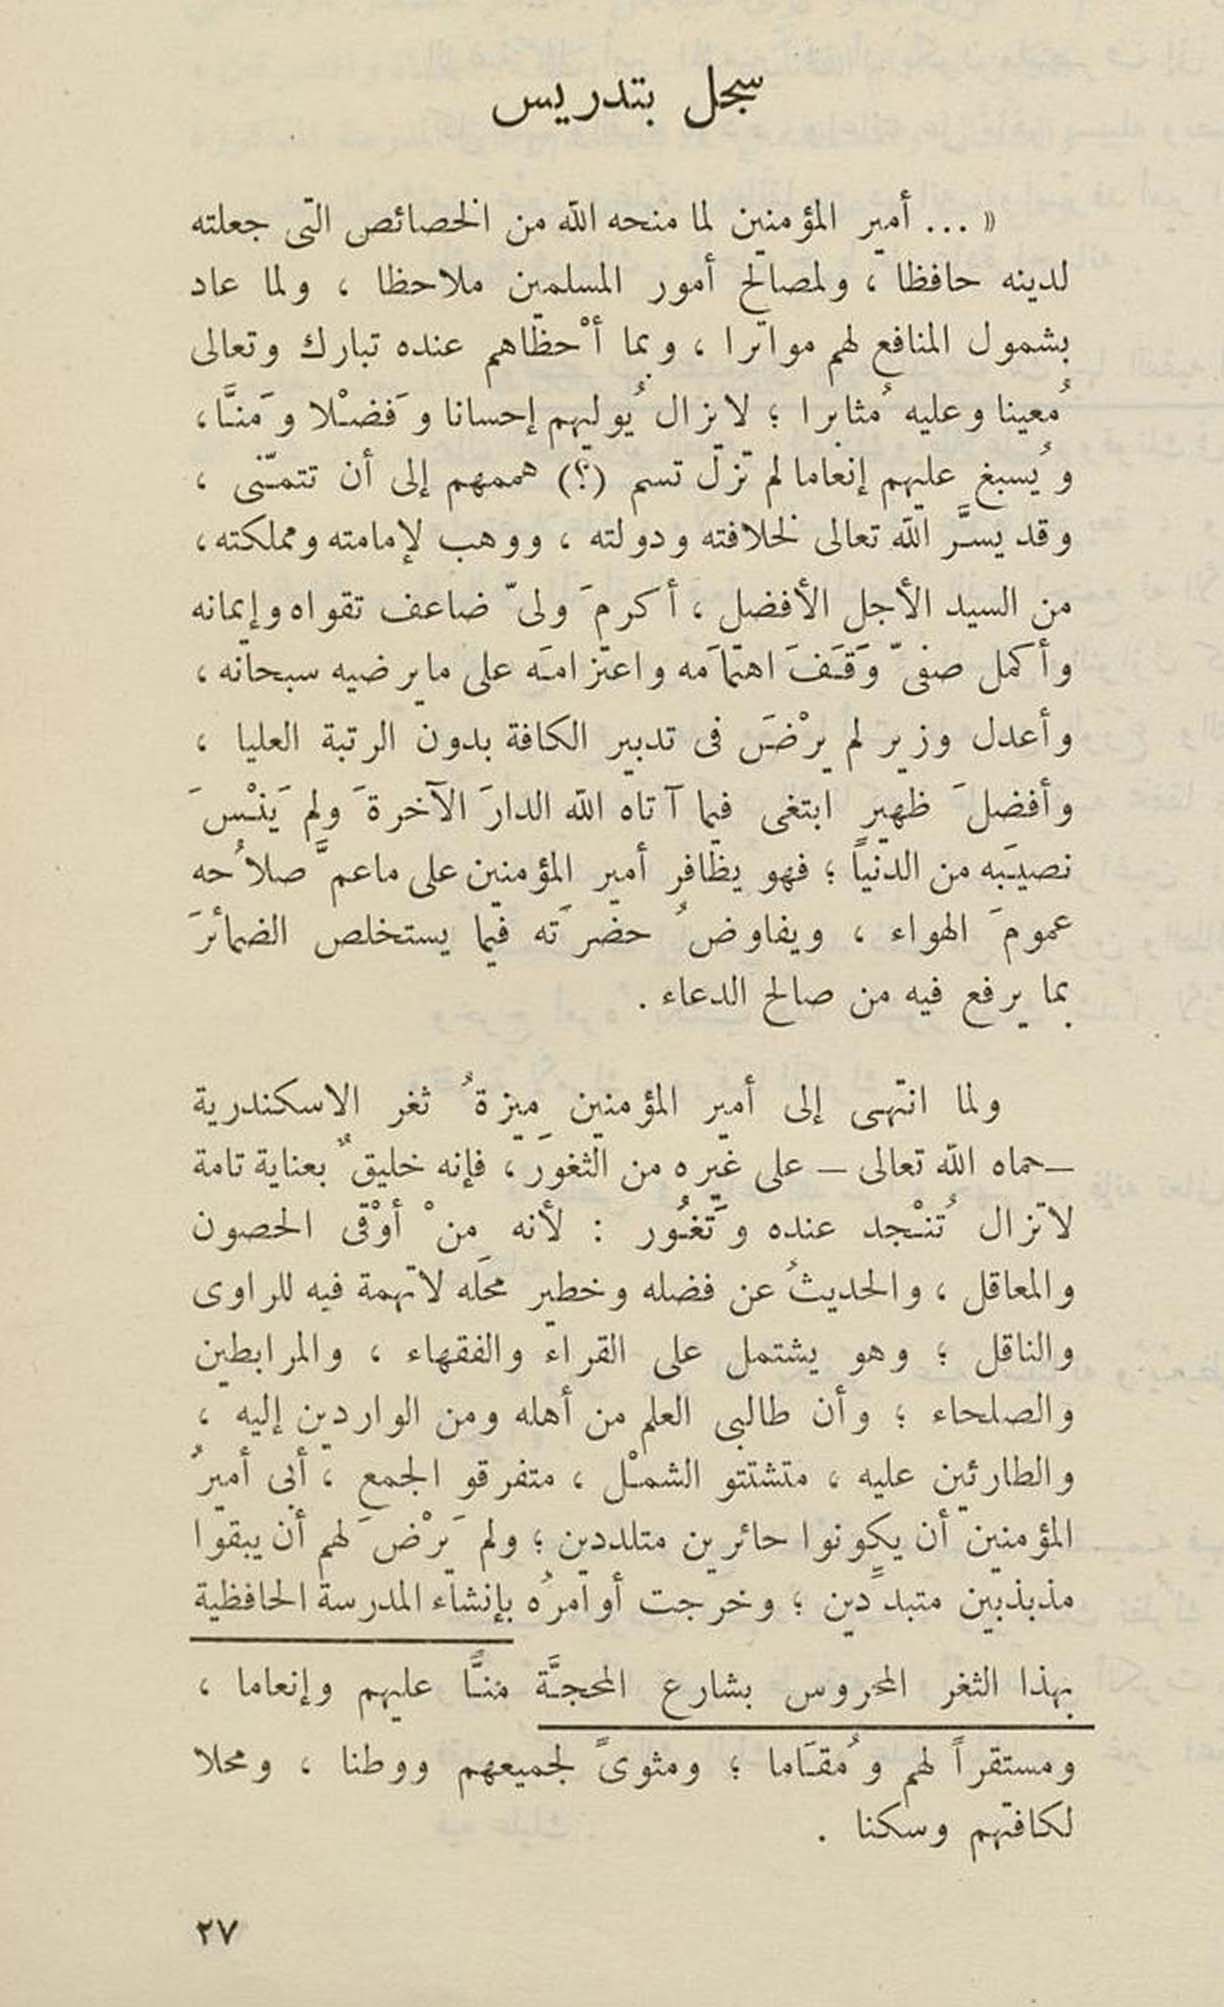 سجل بتدريس
« ... أمير المؤمنين لما منحه الله من الخصائص التى جعلته
لدينه حافظا ، ولمصالح أمور المسلمين ملاحظا ، ولما عاد
بشمول المنافع لهم مواترا ، وبما أحْظاهم عنده تبارك وتعالى
مُعينا وعليه مُثابرا ؛ لا يزال يُوليهم إحسانا وفَضْلا ومَنًّا ،
ويُسبغ عليهم إنعاما لم تزل تسم (؟) هممهم إلى أن تتمنّى ،
وقد يسَّر الله تعالى لخلافته ودولته ، ووهب لإمامته ومملكته ،
من السيد الأجل الأفضل ، أكرمَ ولىّ ضاعف تقواه وإيمانه
وأكمل صفىّ وَقَفَ اهتمامَه واعتزامَه على مايرضيه سبحانه ،
وأعدل وزير لم يرْضَ فى تدبير الكافة بدون الرتبة العليا ،
وأفضلَ ظهير ابتغى فيما آتاه الله الدارَ الآخرةَ ولم يَنْسَ
نصيبَه من الدنيا ؛ فهو يظافر أمير المؤمنين على ماعمَّ صلاحُه
عمومَ الهواء ، ويفاوضُ حضرتَه فيما يستخلص الضمائرَ
بما يرفع فيه من صالح الدعاء .
ولما انتهى إلى أمير المؤمنين ميزةُ ثغر الاسكندرية
— حماه الله تعالى — على غيره من الثغور ، فإنه خليقٌ بعناية تامة
لاتزال تُنْجد عنده وتَغُور : لأنه مِنْ أوْقى الحصون
والمعاقل ، والحديثُ عن فضله وخطير محله لاتهمة فيه للراوى
والناقل ؛ وهو يشتمل على القراء والفقهاء ، والمرابطين
والصلحاء ؛ وأن طالبى العلم من أهله ومن الواردين إليه ،
والطارئين عليه ، متشتتو الشمْل ، متفرقو الجمع ، أبى أميرُ
المؤمنين أن يكونوا حائرين متلددين ؛ ولم يَرْضَ لهم أن يبقوا
مذبذبين متبدِّدين ؛ وخرجت أوامرُه بإنشاء المدرسة الحافظية
بهذا الثغر المحروس بشارع المحجَّة منًّا عليهم وإنعاما ،
ومستقراً لهم ومُقَاما ؛ ومثوىً لجميعهم ووطنا ، ومحلا
لكافتهم وسكنا .
٢٧